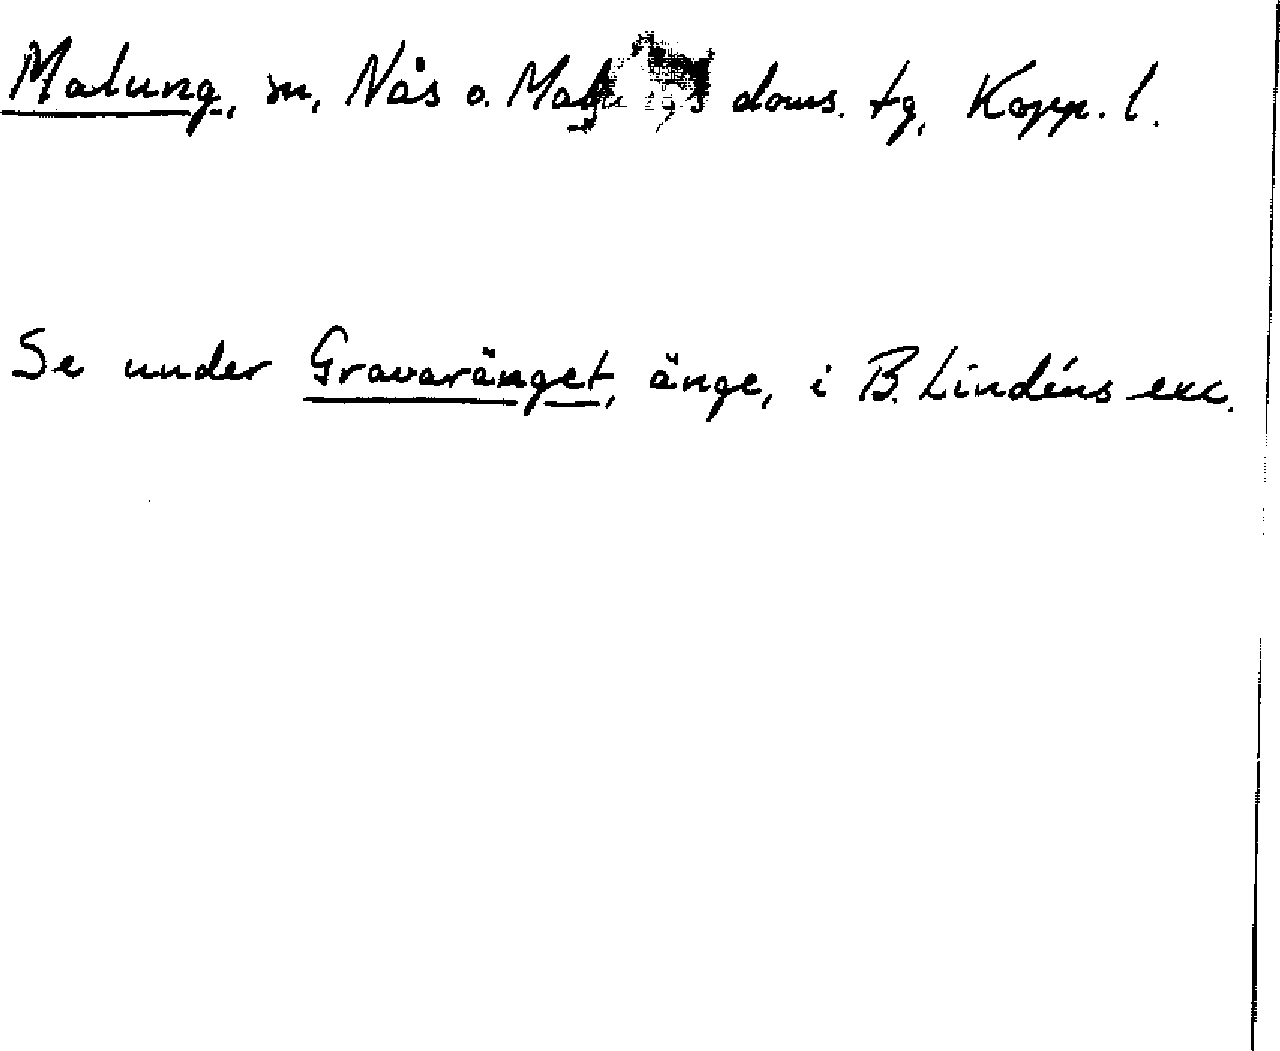 Malung, sn, Nås o. doms. tg, Kopp. l.
Se under Gravaränget, änge, i B. Lindéns exc.